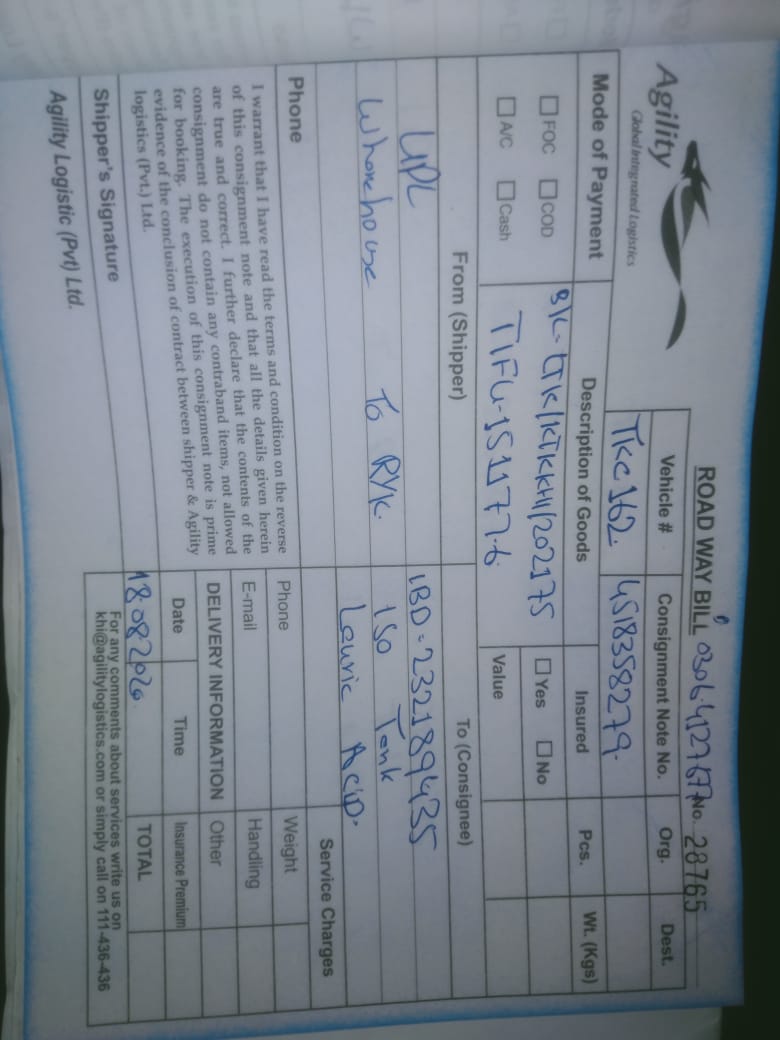 Agility
Global Integrated Logistics
ROAD WAY BILL 0306-4127677 No. 28765
Vehicle # Consignment Note No. Org. Dest.
TKC 162. 4518358279.
Mode of Payment Description of Goods Insured Pcs. Wt. (Kgs)
☐ FOC ☐ COD B/L- LTK/KTKKHI/202175 ☐ Yes ☐ No
☐ A/C ☐ Cash TIFU-151177-6 Value
From (Shipper) To (Consignee)
UPL IBD-232189435
Wharehouse To RYK. ISO Tank
Lauric Acid.
Service Charges
Phone
Phone Weight
E-mail Handling
I warrant that I have read the terms and condition on the reverse
of this consignment note and that all the details given herein
are true and correct. I further declare that the contents of the
consignment do not contain any contraband items, not allowed
for booking. The execution of this consignment note is prime
evidence of the conclusion of contract between shipper & Agility
logistics (Pvt.) Ltd.
DELIVERY INFORMATION Other
Date Time Insurance Premium
18.08.2020 TOTAL
Shipper's Signature
For any comments about services write us on
khi@agilitylogistics.com or simply call on 111-436-436
Agility Logistic (Pvt) Ltd.